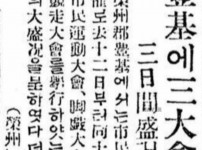 豊基에三大會
三日間盛況
榮州郡豊基에서는市民
로去十二日부터同十
市民運動大會、脚戱大
競走大會를擧行하얏는
의大盛況을呈하엿다더
(榮州